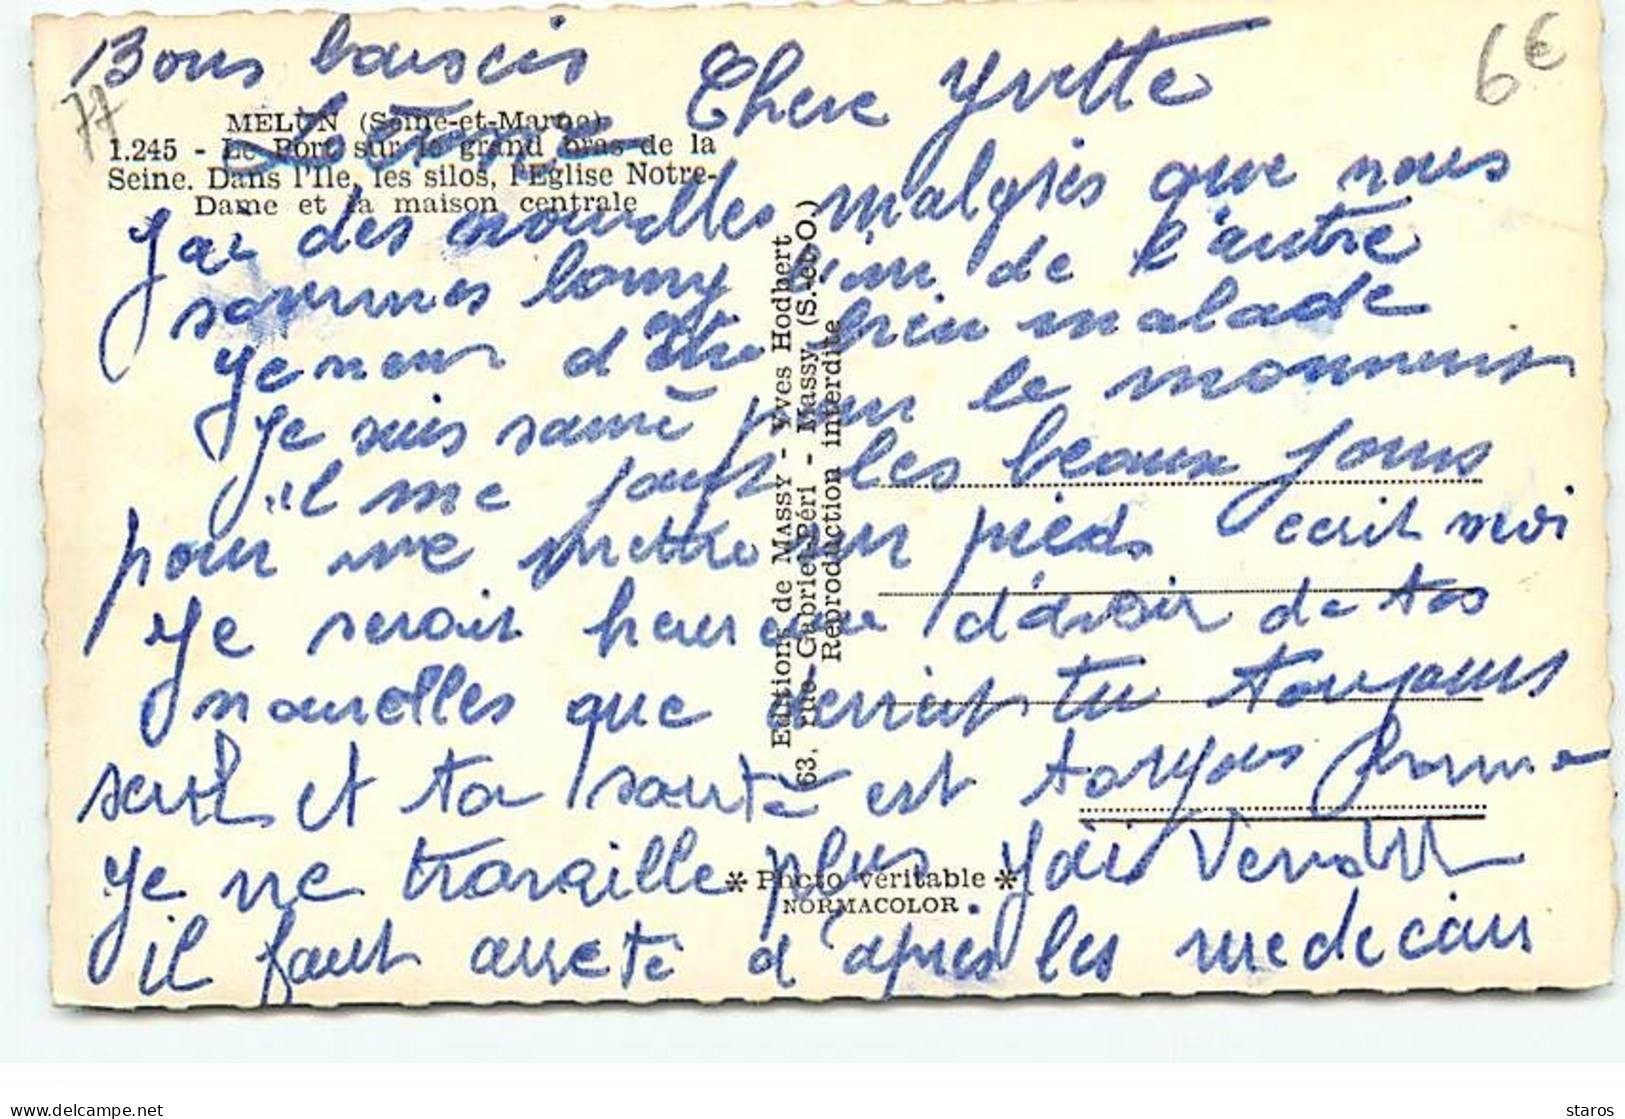 Bons baiseis
Chere Yvette
6€
77
MELUN (Seine-et-Marne)
1.245 - Le Port sur le grand bras de la
Seine. Dans l'Ile, les silos, l'Eglise Notre-
Dame et la maison centrale
j'ai des nouvelles malgrés que nous
sommes l'un de l'autre
je d'être bien malade
je suis sauvé pour le moment
il me faut les beaux jours
pour me mettre sur pieds ecrit moi
je serait heureuse d'avoir de tes
nouvelles que devient tu toujours
seul et ta santé est toujous bonne
je ne travaille plus j'ai
il faut arreté d'après les medecins
Editions de MASSY - Yves Hodbert
63, rue Gabriel-Péri - Massy (S.-et-O.)
Reproduction interdite
* Photo véritable *
NORMACOLOR
delcampe.net
staros